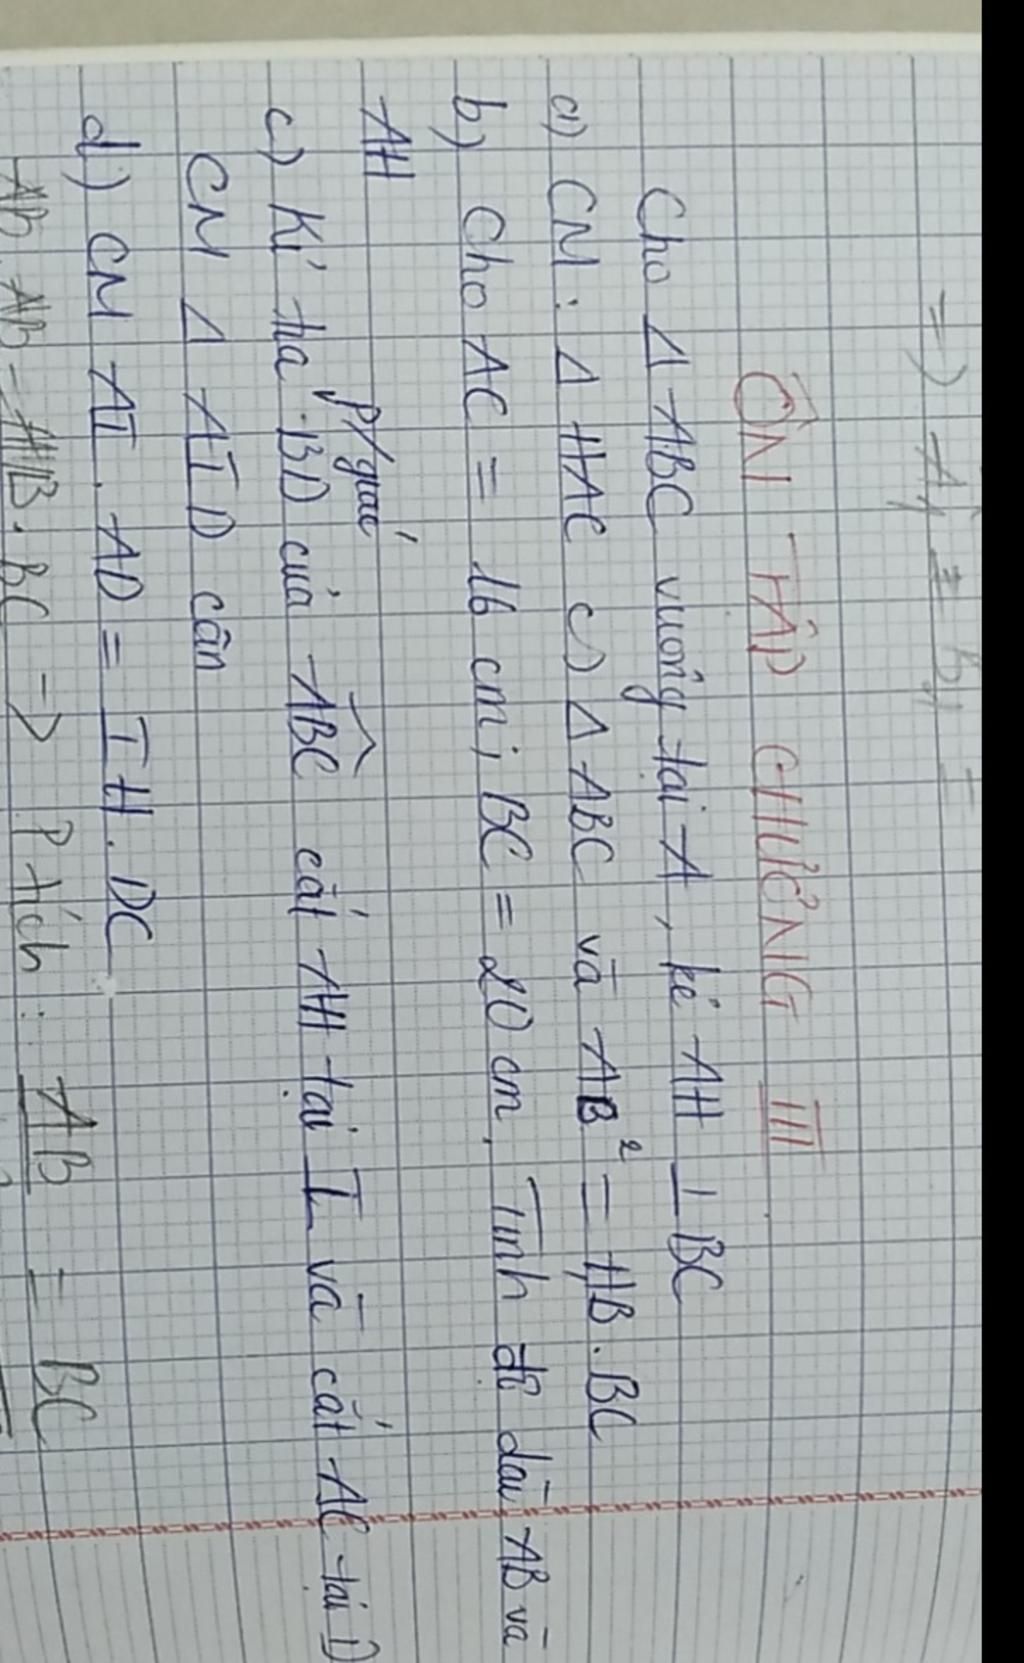 => A₁ = B₁ =
ÔN TẬP CHƯƠNG III
Cho Δ ABC vuông tại A, kẻ AH ⊥ BC
a) CM: Δ HAC ∽ Δ ABC và AB² = HB.BC
b) Cho AC = 16 cm; BC = 20 cm. Tính độ dài AB và
AH
p/giác
c) Kẻ tia BD của ABC cắt AH tại I và cắt AC tại D
CM Δ AID cân
d) CM AI. AD = IH. DC
AB. AB = HB. BC => P tích: AB = BC